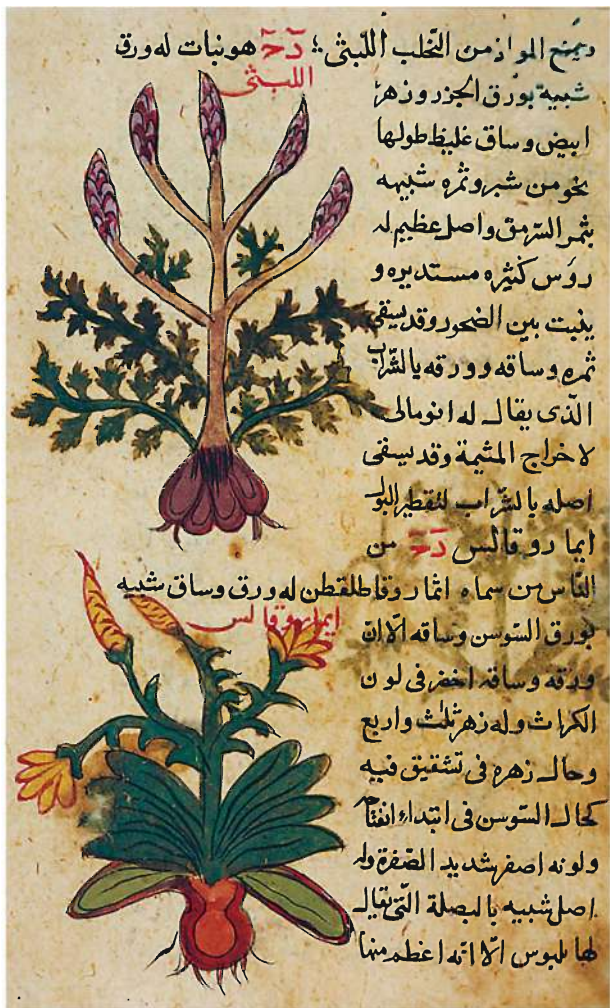 ويمنع المواد من التحلب اللبثى؛ دَخَ هو نبات له ورق
اللبثى
شبيه بورق الجزر وزهر
ابيض وساق غليظ طولها
نحو من شبر وثمره شبيهه
بثمر السرمق واصل عظيم له
رؤس كثيره مستديره و
ينبت بين الصخور وقد يسقى
ثمره وساقه وورقه بالشراب
الذى يقال له انومالى
لاخراج المشيمة وقد يسقى
اصله بالشراب لتقطير البول
ايماروقالس دَخَ من
الناس من سماه انماروقاطلقطن له ورق وساق شبيه
ايماروقالس
بورق السوسن وساقه الا ان
ورقه وساقه اخضر فى لون
الكراث وله زهر ثلث واربع
وحال زهره فى تشقيق فيه
كحال السوسن فى ابتداء انفتاح
ولونه اصفر شديد الصفرة وله
اصل شبيه بالبصلة التى يقال
لها بلبوس الا انه اعظم منها